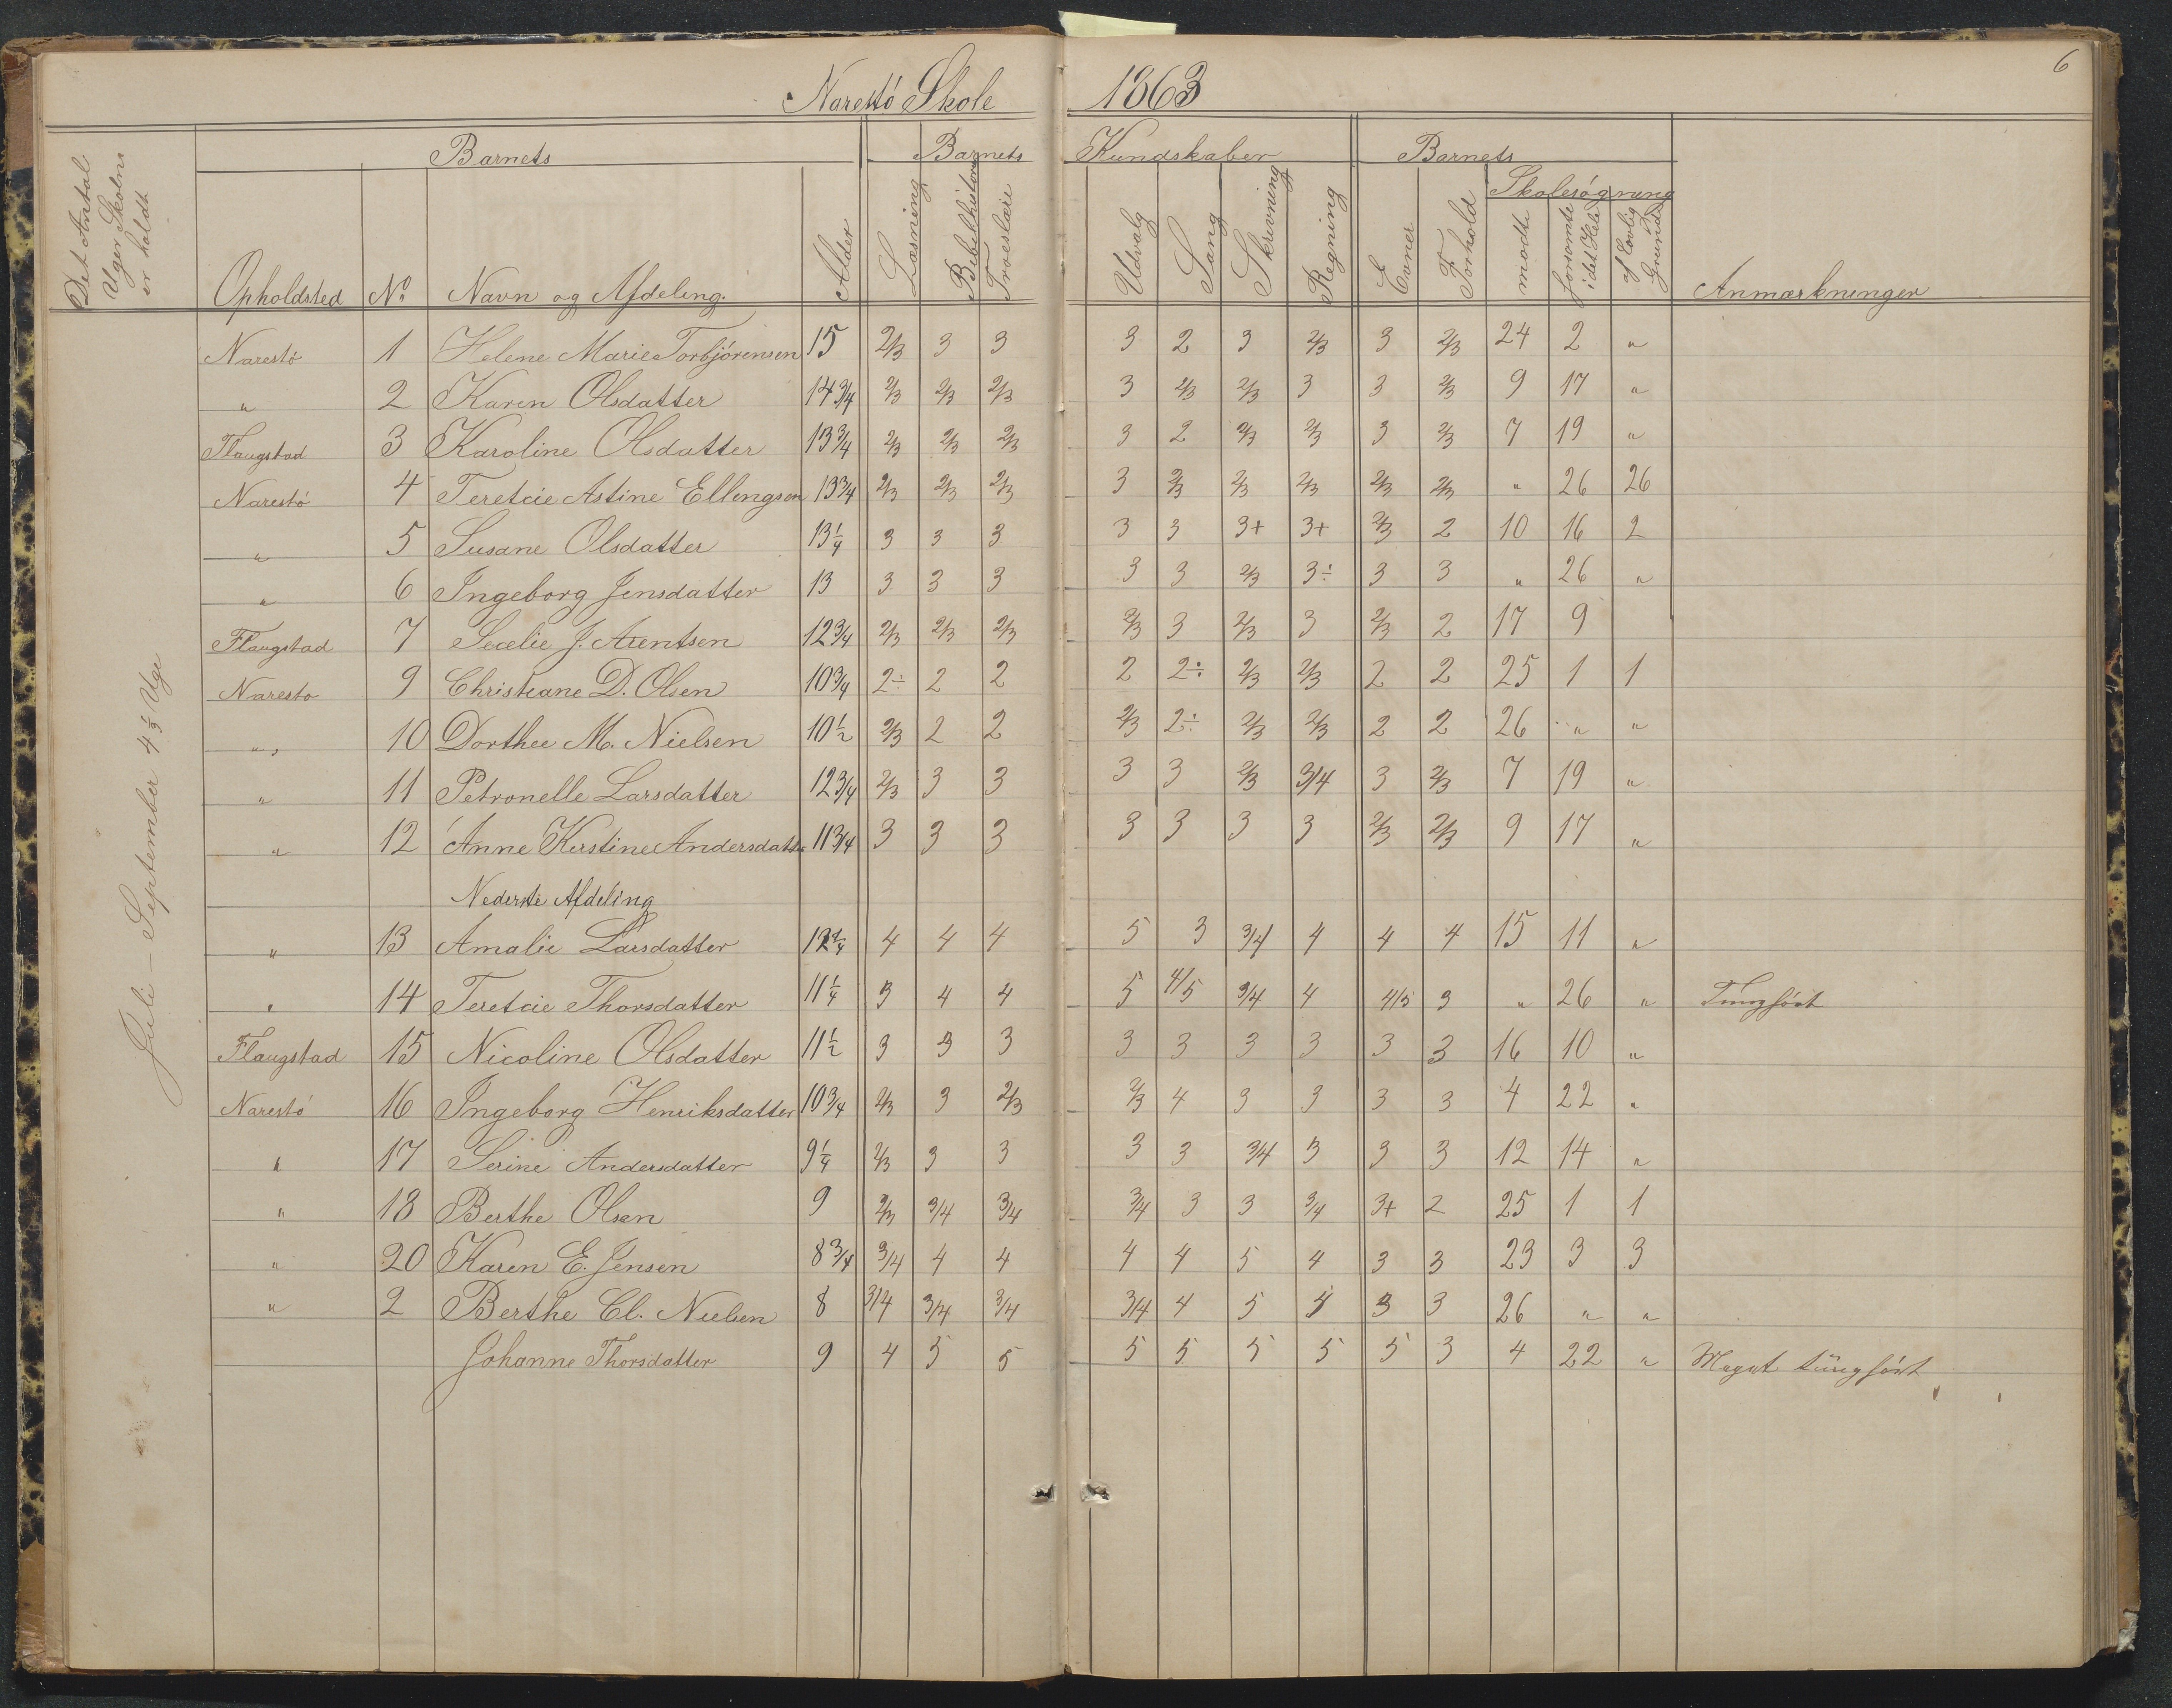 6
Narestö Skole 1863
Det Antal Uger Skolen er holdt
Barnets
Barnets Kundskaber
Barnets
Skolesøgning
Opholdsted No Navn og Afdeling. Alder Læsning Bibelhistorie Troeslære Udvalg Sang Skrivning Regning Evner Forhold mødt forsømte i det Hele af lovlig Grunde Anmærkninger
Juli - September 4 1/3 Uge
Narestö 1 Helene Marie Torbjörensen 15 2/3 3 3 3 2 3 2/3 3 2/3 24 2 "
" 2 Karen Olsdatter 14 3/4 2/3 2/3 2/3 3 2/3 2/3 3 3 2/3 9 17 "
Flaugstad 3 Karoline Olsdatter 13 3/4 2/3 2/3 2/3 3 2 2/3 2/3 3 2/3 7 19 "
Narestö 4 Teretcie Astine Ellingsen 13 3/4 2/3 2/3 2/3 3 2/3 2/3 2/3 2/3 2/3 " 26 26
" 5 Susane Olsdatter 13 1/4 3 3 3 3 3 3+ 3+ 2/3 2 10 16 2
" 6 Ingeborg Jensdatter 13 3 3 3 3 3 2/3 3÷ 3 3 " 26 "
Flaugstad 7 Secelie J. Arentsen 12 3/4 2/3 2/3 2/3 2/3 3 2/3 3 2/3 2 17 9
Naresto 9 Christiane D. Olsen 10 3/4 2÷ 2 2 2 2÷ 2/3 2/3 2 2 25 1 1
" 10 Dorthee M. Nielsen 10 1/2 2/3 2 2 2/3 2÷ 2/3 2/3 2 2 26 " "
" 11 Petronelle Larsdatter 12 3/4 2/3 3 3 3 3 2/3 3/4 3 2/3 7 19 "
" 12 Anne Kirstine Andersdatter 11 3/4 3 3 3 3 3 3 3 2/3 2/3 9 17 "
Nederste Afdeling
" 13 Amalie Larsdatter 12 1/4 4 4 4 5 3 3/4 4 4 4 15 11 "
" 14 Teretcie Thorsdatter 11 1/4 3 4 4 5 4/5 3/4 4 4/5 3 " 26 " Tungført
Flaugstad 15 Nicoline Olsdatter 11 1/2 3 3 3 3 3 3 3 3 3 16 10 "
Narestö 16 Ingeborg Henriksdatter 10 3/4 2/3 3 2/3 2/3 4 3 3 3 3 4 22 "
" 17 Serine Andersdatter 9 1/4 2/3 3 3 3 3 3/4 3 3 3 12 14 "
" 18 Berthe Olsen 9 2/3 3/4 3/4 3/4 3 3 3/4 3+ 2 25 1 1
" 20 Karen E. Jensen 8 3/4 3/4 4 4 4 4 5 4 3 3 23 3 3
" 2 Berthe Cl. Nielsen 8 3/4 3/4 3/4 3/4 4 5 4 3 3 26 " "
Johanne Thorsdatter 9 4 5 5 5 5 5 5 5 3 4 22 " Meget tungført